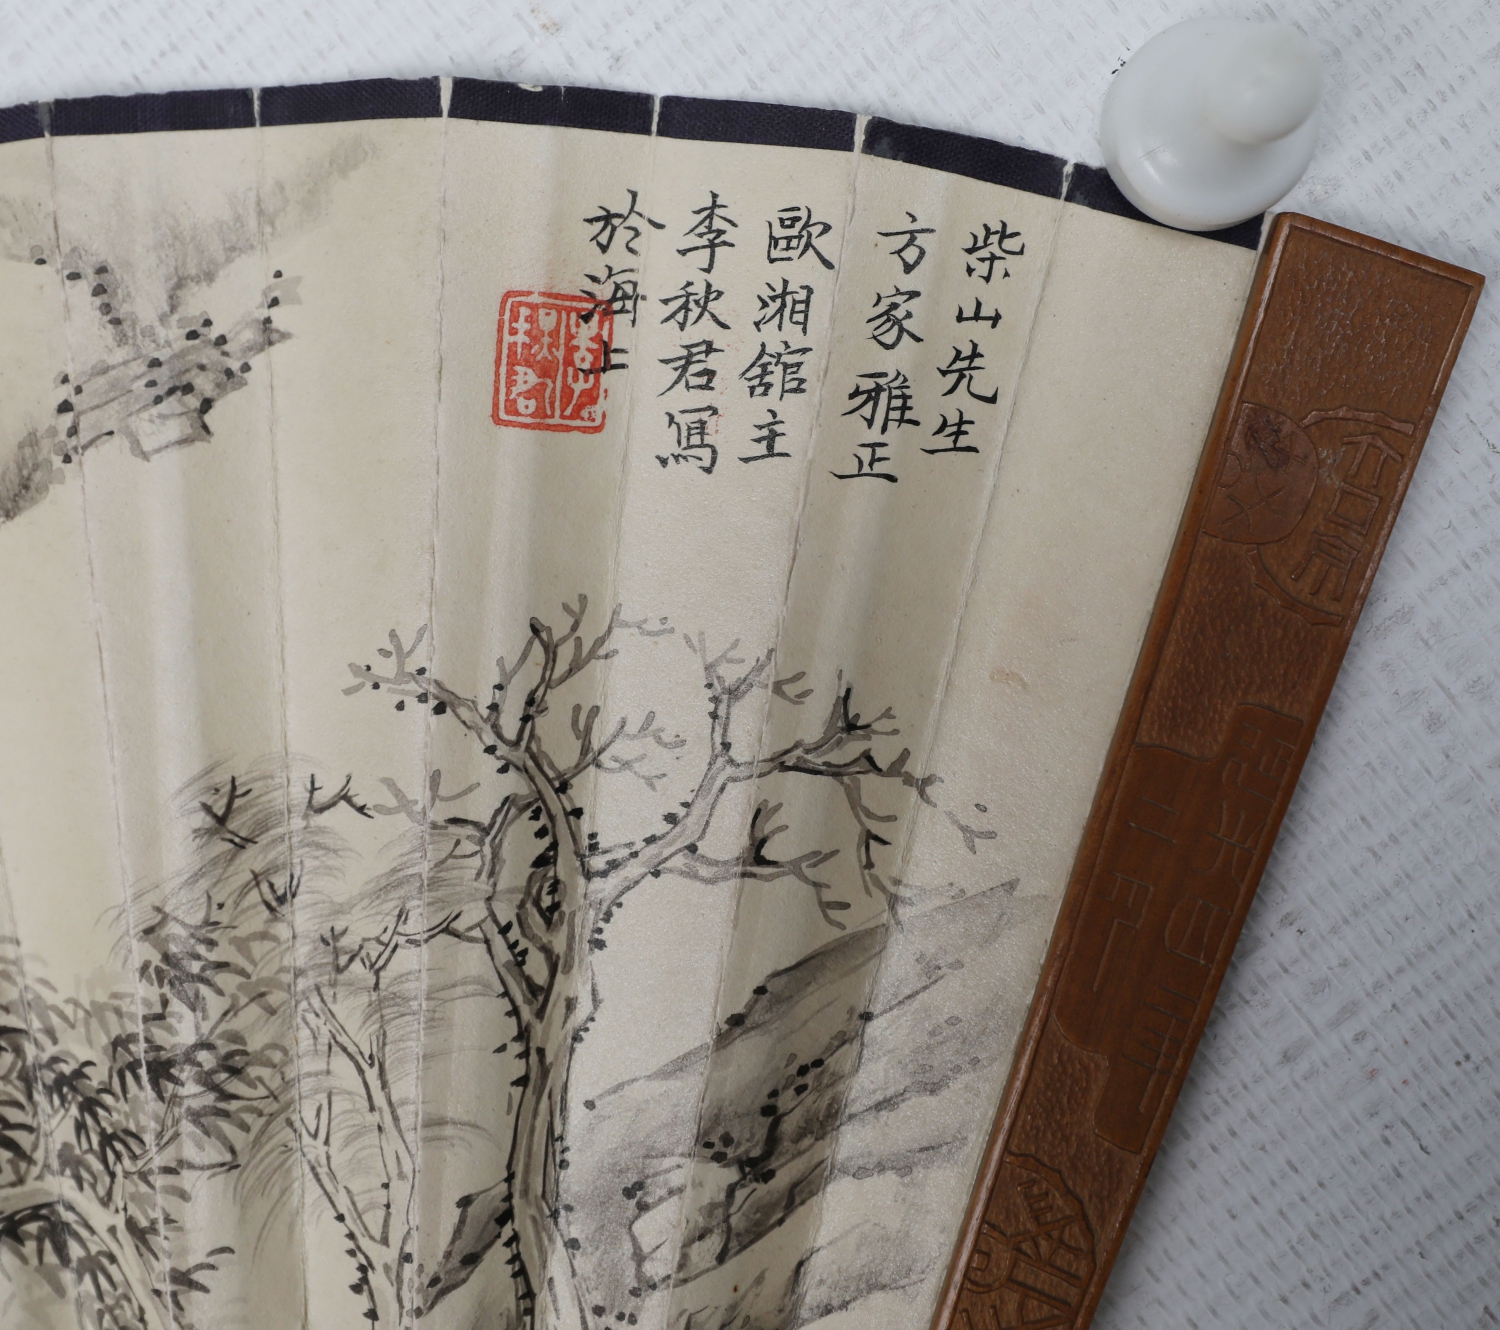 柴山先生
方家雅正
歐湘舘主
李秋君寫
於海上
李秋君